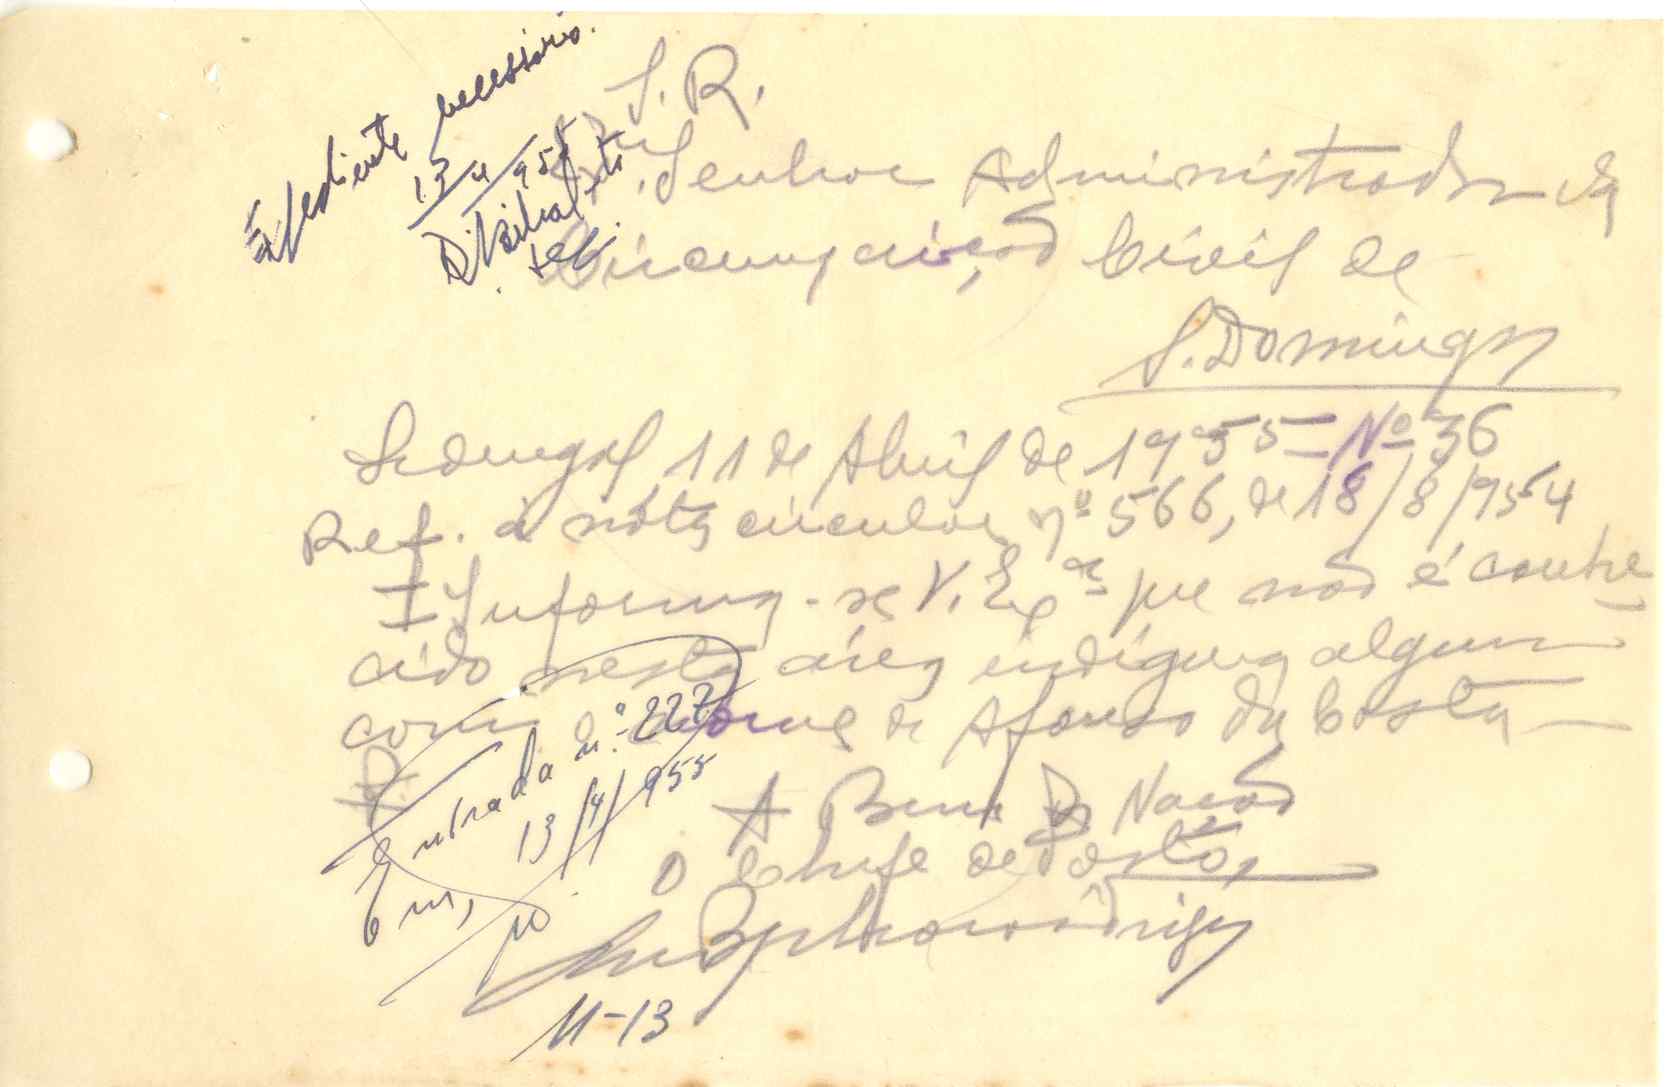 Expediente necessário.
13/4/955
S. R.
Senhor Administrador da
Circunscrição Civil de
S. Domingos
Sedengal 11 de Abril de 1955 = Nº 36
Ref. à nóta circular nº 566, de 18/8/954
I Informa-se V. Exª que não é conhe
cido nesta área indígena algum
com o nome de Afonso da Costa —
A Bem da Nação
O Chefe de Posto,
Entrada n.º 227
13/4/955
Em,
11-13